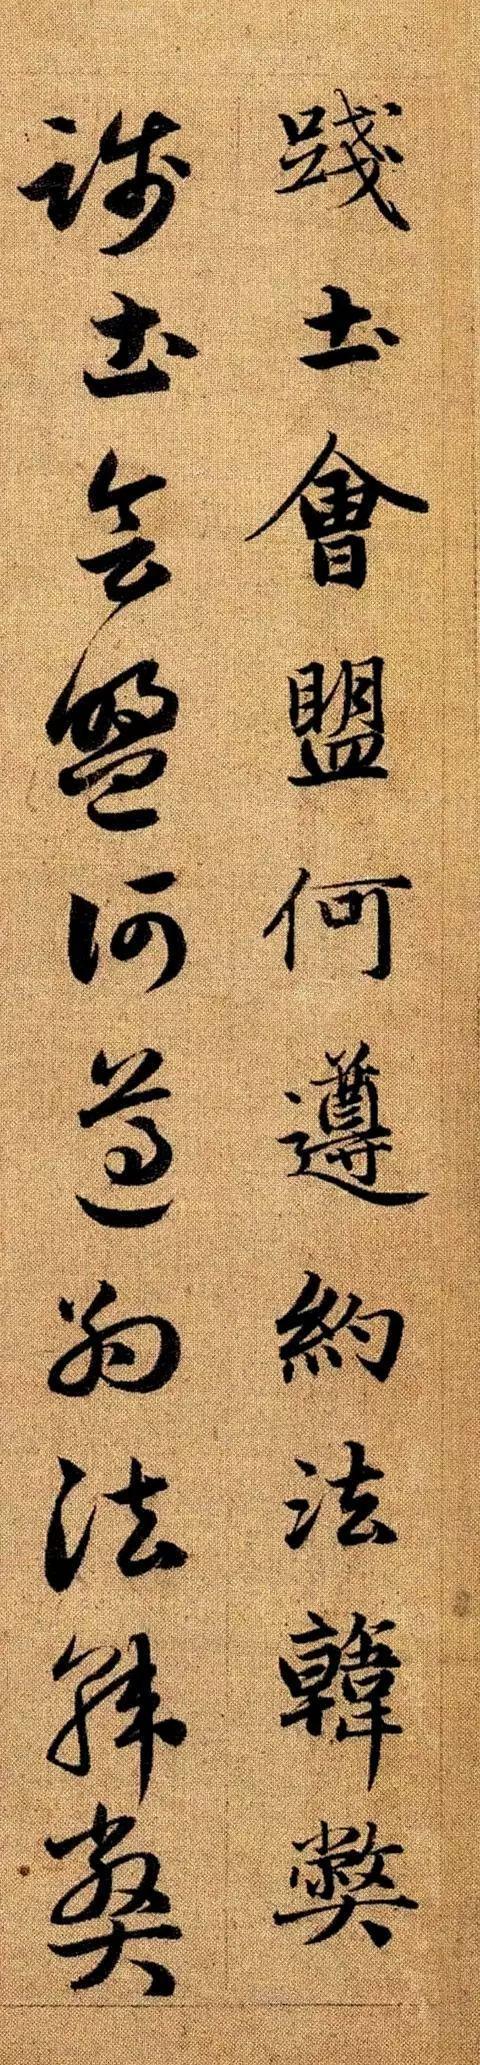 踐土會盟何遵約法韓弊
踐土會盟何遵約法韓弊